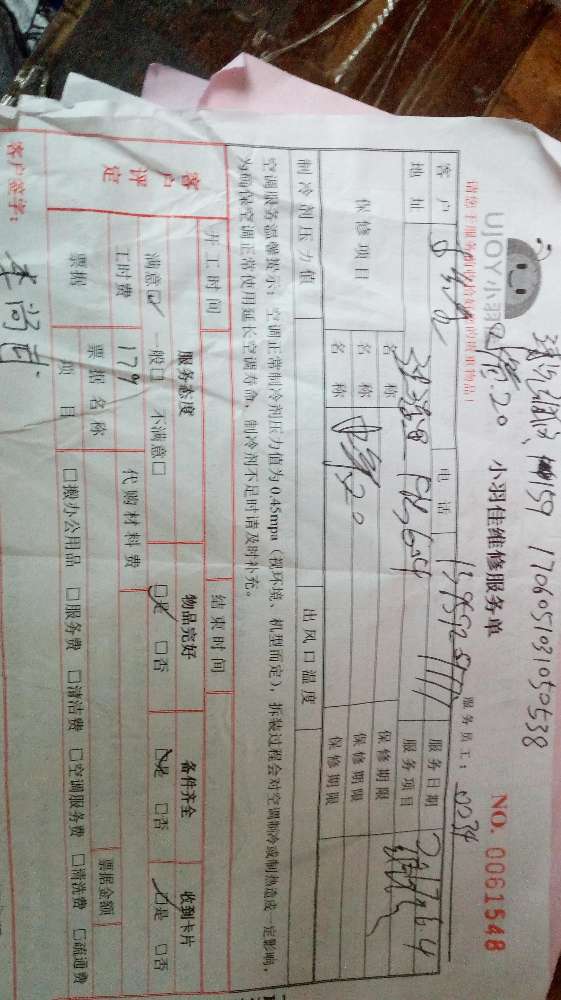 159 1706051031050538
UJOY小羽佳 小羽佳维修服务单 NO. 0061548
服务员工: 0034
客户 电话 服务日期 2017.6.4
地址 服务项目
保修项目 名称 保修期限
名称 保修期限
名称 保修期限
制冷剂压力值 出风口温度
空调服务温馨提示: 空调正常制冷剂压力值为0.45mpa (视环境、机型而定), 拆装过程会对空调制冷或制热造成一定影响,
为确保空调正常使用延长空调寿命, 制冷剂不足时请及时补充。
开工时间 结束时间
客户评定 服务态度 物品完好 备件齐全 收到卡片
满意☑ 一般□ 不满意□ ☑是 □否 ☑是 □否 ☑是 □否
工时费 179 代购材料费
票据 票据名称 票据金额
项目 □搬办公用品 □服务费 □清洁费 □空调服务费 □清洗费 □疏通费
客户签字: 李尚武